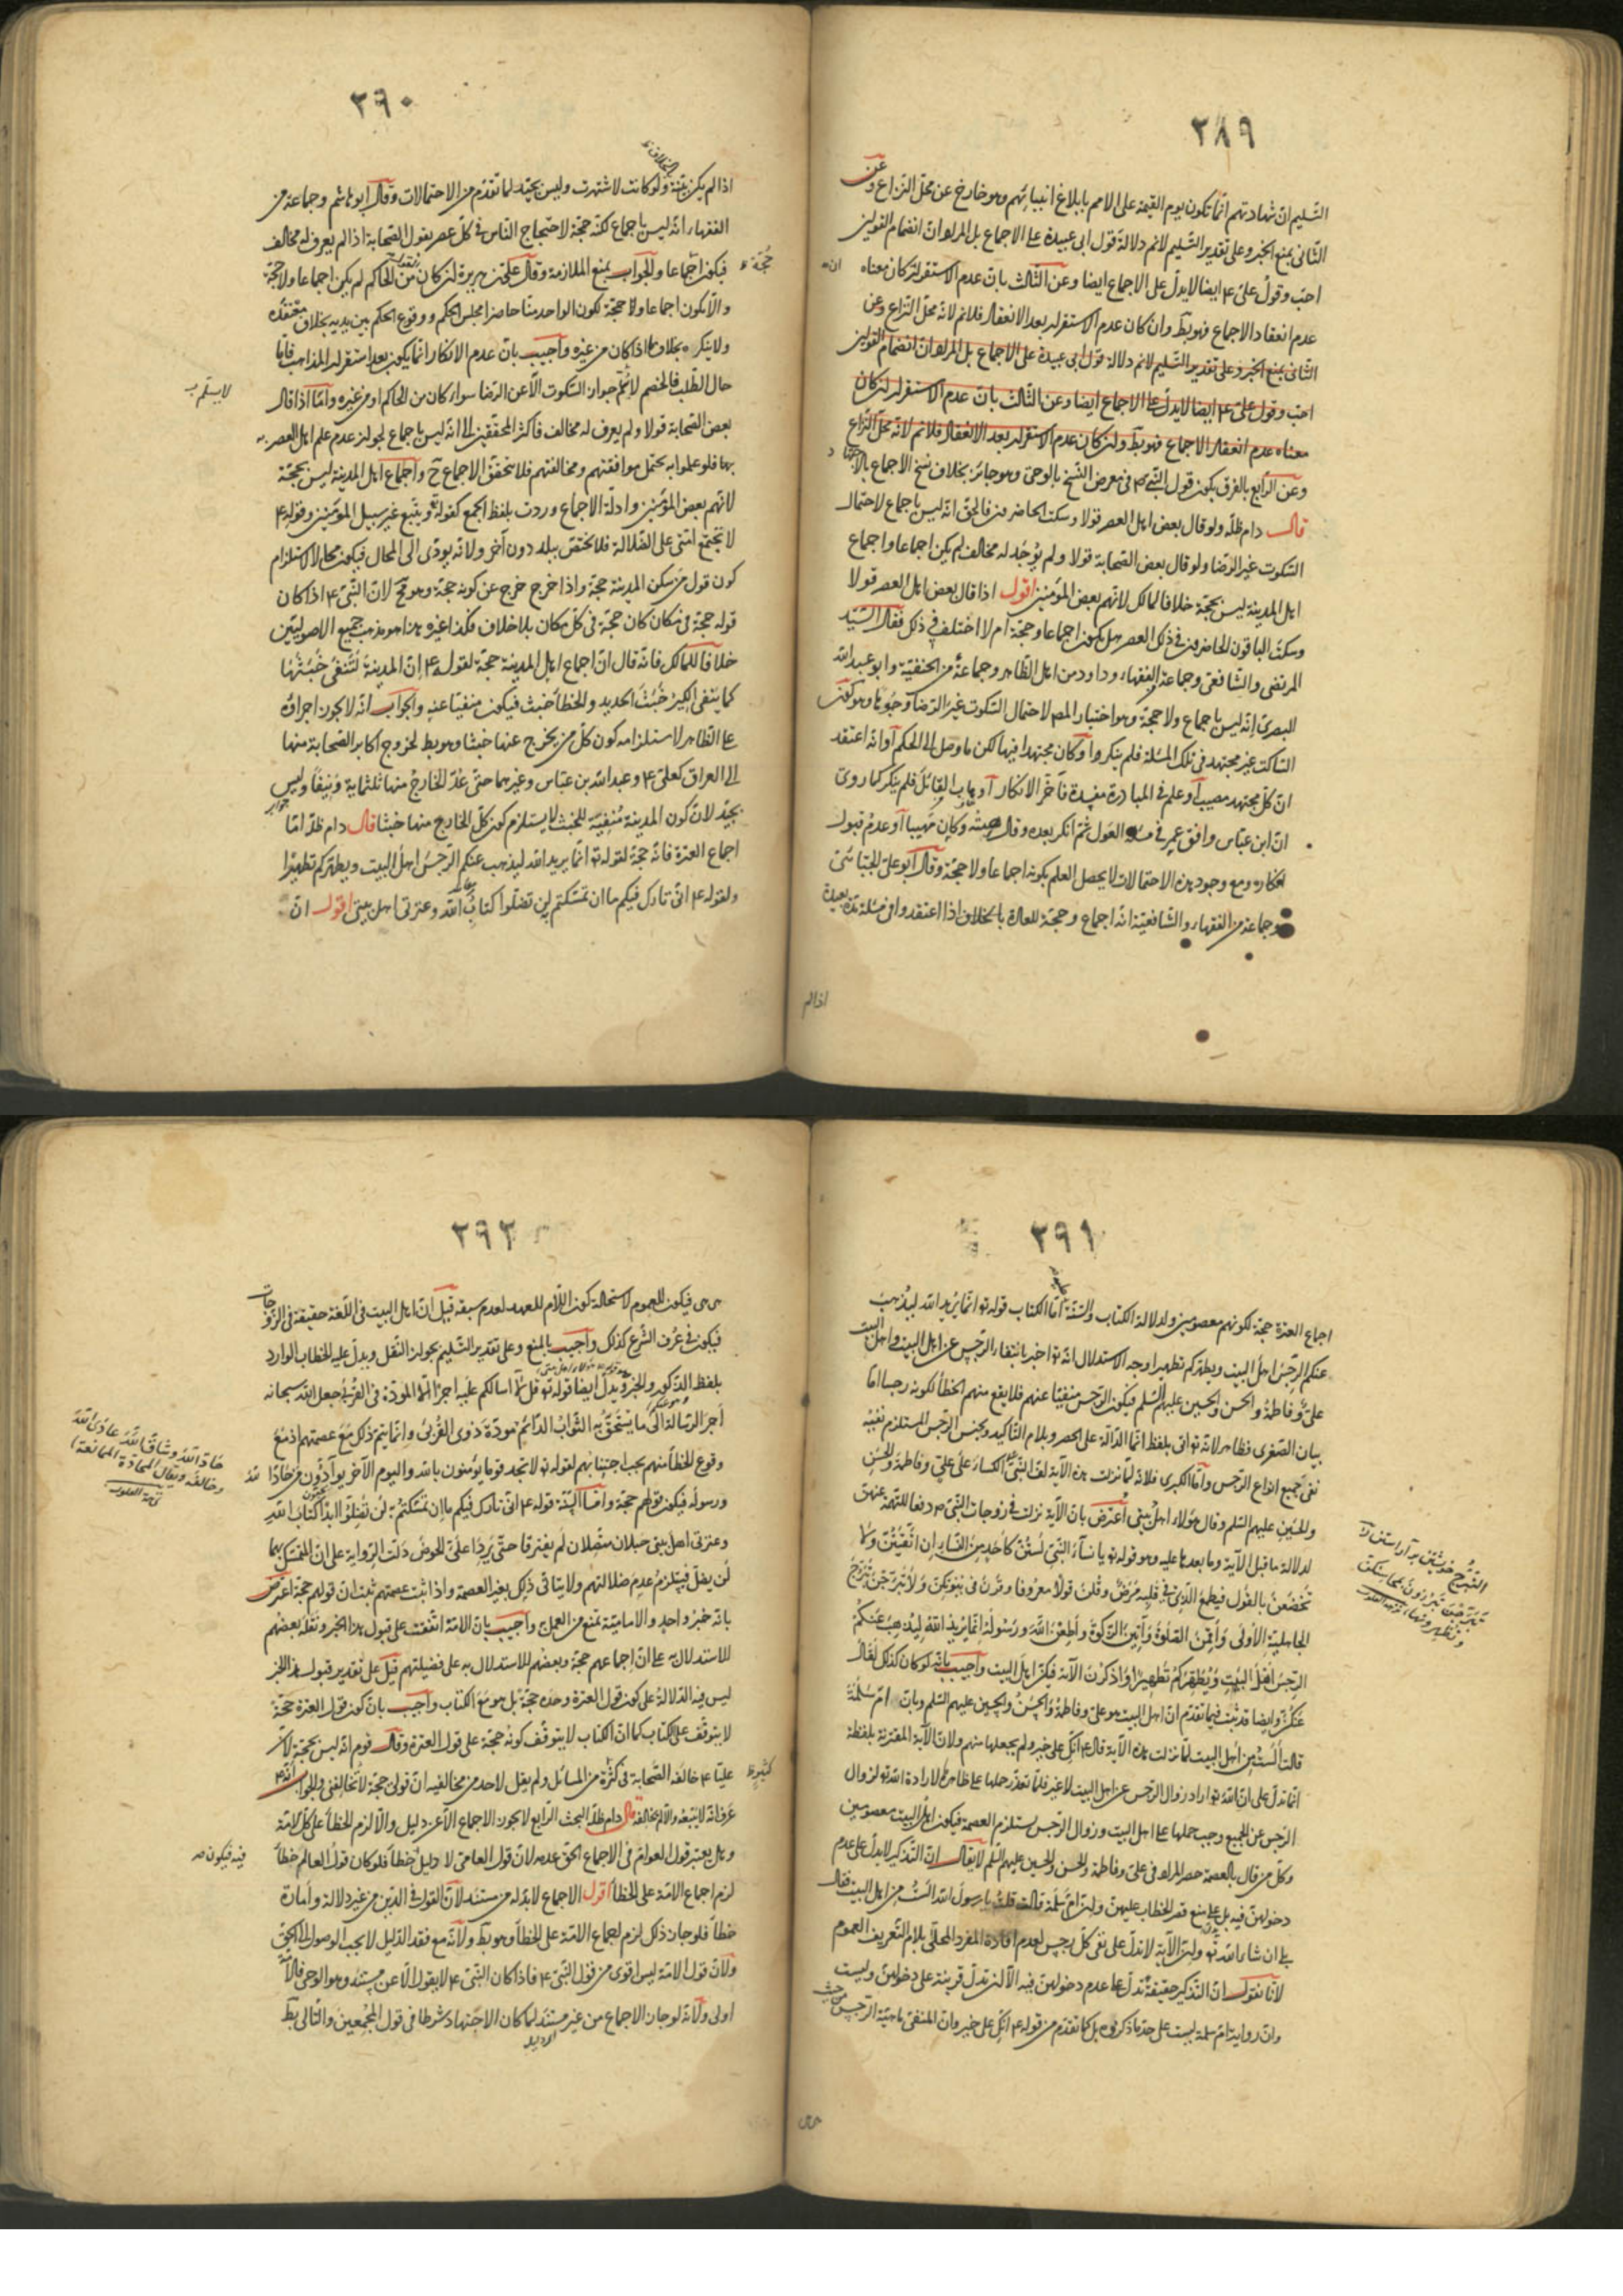 ٢٨٩
التسليم ان شهادتهم انما تكون يوم القيمة على الامم بابلاغ انبيائهم وهو خارج عن محل النزاع وعن
الثانى بمنع الخبر وعلى تقدير التسليم لانم دلالة قول ابى عبيدة على الاجماع بل المراد ان انضمام القولين
احب وقول علىّ ۴ ايضا لا يدل على الاجماع ايضا وعن الثالث بان عدم الاستقرار ان كان معناه
ان
عدم انعقاد الاجماع فهو بط وان كان عدم الاستقرار بعد الانعقاد فلانم لانه محل النزاع وعن
الثانى بمنع الخبر وعلى تقدير التسليم لانم دلالة قول ابى عبيدة على الاجماع بل المراد ان انضمام القولين
احب وقول علىّ ۴ ايضا لا يدل على الاجماع ايضا وعن الثالث بان عدم الاستقرار ان كان
معناه عدم انعقاد الاجماع فهو بط وان كان عدم الاستقرار بعد الانعقاد فلانم لانه محل النزاع
وعن الرابع بالفرق بكون قول النبى ص فى معرض النسخ بالوحى وهو جائز بخلاف نسخ الاجماع بالاجتهاد
قال دام ظله ولو قال بعض اهل العصر قولا وسكت الحاضرون فالحق انه ليس باجماع لاحتمال
السكوت غير الرضا ولو قال بعض الصحابة قولا ولم يوجد له مخالف لم يكن اجماعا واجماع
اهل المدينة ليس بحجة خلافا لمالك لانهم بعض المؤمنين اقول اذا قال بعض اهل العصر قولا
وسكت الباقون الحاضرون فى ذلك العصر هل يكون اجماعا وحجة ام لا اختلف فى ذلك فقال السيد
المرتضى والشافعى وجماعة الفقهاء وداود من اهل الظاهر وجماعة من الحنفية وابو عبد الله
البصرى انه ليس باجماع ولا حجة وهو اختيار المص لاحتمال السكوت غير الرضا وجوها وهو كون
الساكت غير مجتهد فى تلك المسئلة فلم ينكر او كان مجتهدا فيها لكن ما وصل الى الحكم او انه اعتقد
ان كل مجتهد مصيب او علم فى المبادرة مفسدة فاخر الانكار او هاب القائل فلم ينكر كما روى
ان ابن عباس وافق عمر فى مسئلة العول ثم انكر بعده وقال هبته وكان مهيبا او عدم قبول
انكاره ومع وجود هذه الاحتمالات لا يحصل العلم بكونه اجماعا ولا حجة وقال ابو على الجبائى
وجماعة من الفقهاء والشافعية انه اجماع وحجة للعادة بالخلاف اذا اعتقدوا فى مسئلة
اذا لم
٢٩٠
اذا لم يكن تقية ولو كانت لاشتهرت وليس بجيد لما تقدم من الاحتمالات وقال ابو هاشم وجماعة من
الفقهاء انه ليس باجماع لكنه حجة لاحتجاج الناس فى كل عصر بقول الصحابة اذا لم يعرف له مخالف
فيكون اجماعا والجواب بمنع الملازمة وقال على بن هريرة ان كان من الحاكم لم يكن اجماعا ولا حجة
حجة ظ
والا يكون اجماعا ولا حجة لكون الواحد منا حاضرا مجلس الحكم ووقوع الحكم بين يديه بخلاف معتقده
ولا ينكره بخلاف ما اذا كان من غيره واجيب بان عدم الانكار انما يكون بعد استقرار المذاهب فاما
حال الطلب فالخصم لا يسلم جواز السكوت الا عن الرضا سواء كان من الحاكم او من غيره واما اذا قال
لا يسلم
بعض الصحابة قولا ولم يعرف له مخالف فاكثر المحققين الى انه ليس باجماع لجواز عدم علم اهل العصر
بها فلو علموا به يحتمل موافقتهم ومخالفتهم فلا يتحقق الاجماع ح واجماع اهل المدينة ليس بحجة
لانهم بعض المؤمنين وادلة الاجماع وردت بلفظ الجمع كقوله ويتبع غير سبيل المؤمنين وقوله ۴
لا تجتمع امتى على الضلالة فلا يختص ببلد دون آخر ولانه يودى الى المحال فيكون محالا لاستلزام
كون قول من سكن المدينة حجة واذا خرج خرج عن كونه حجة وهو مح لان النبى ۴ اذا كان
قوله حجة فى مكان كان حجة فى كل مكان بلا خلاف فكذا غيره هذا هو مذهب جميع الاصوليين
خلافا لمالك فانه قال ان اجماع اهل المدينة حجة لقوله ۴ ان المدينة لتنفى خبثها
كما ينفى الكير خبث الحديد والخطأ خبث فيكون منفيا عنه والجواب انه لا يجوز اجراؤه
على الظاهر لاستلزامه كون كل من يخرج عنها خبثا وهو بط لخروج اكابر الصحابة منها
الى العراق كعلى ۴ وعبد الله بن عباس وغيرهما حتى عدّ الخارج منها ثلثماية ونيفا وليس
بجيد لان كون المدينة منفية للخبث لا يستلزم كون كل الخارج منها خبثا قال دام ظله اما
اجماع العترة فانه حجة لقوله تع انما يريد الله ليذهب عنكم الرجس اهل البيت ويطهركم تطهيرا
ولقوله ۴ انى تارك فيكم ما ان تمسكتم لن تضلوا كتاب الله وعترتى اهل بيتى اقول ان
٢٩١
اجماع العترة حجة لكونهم معصومين ولدلالة الكتاب والسنة اما الكتاب قوله تع انما يريد الله ليذهب
عنكم الرجس اهل البيت ويطهركم تطهيرا وجه الاستدلال انه تع اخبر بانتفاء الرجس عن اهل البيت واهل البيت
على وفاطمة والحسن والحسين عليهم السلم فيكون الرجس منفيا عنهم فلا يقع منهم الخطأ لكونه رجسا اما
بيان الصغرى فظاهر لانه تع اتى بلفظ انما الدالة على الحصر وبلام التاكيد وبجنس الرجس المستلزم نفيه
نفى جميع انواع الرجس واما الكبرى فلانه لما نزلت هذه الآية لف النبى الكساء على على وفاطمة والحسن
والحسين عليهم السلم وقال هؤلاء اهل بيتى اعترض بان الآية نزلت فى زوجات النبى ص دفعا للتهمة عنهن
لدلالة ما قبل الآية وما بعدها عليه وهو قوله تع يا نساء النبى لستن كأحد من النساء ان اتقيتن ولا
تخضعن بالقول فيطمع الذى فى قلبه مرض وقلن قولا معروفا وقرن فى بيوتكن ولا تبرجن تبرج
الجاهلية الاولى واقمن الصلوة وآتين الزكوة واطعن الله ورسوله انما يريد الله ليذهب عنكم
الرجس اهل البيت ويطهركم تطهيرا واذكرن الآية فكن اهل البيت واجيب بانه لو كان كذلك لقال
عنكن وايضا قد ثبت فيما تقدم ان اهل البيت هو على وفاطمة والحسن والحسين عليهم السلم وبان ام سلمة
قالت ألست من اهل البيت لما نزلت هذه الآية قال ۴ انك على خير ولم يجعلها منهم ولان الآية المقترنة بلفظة
انما تدل على ان الله تع اراد زوال الرجس عن اهل البيت لا غير فلما تعذر حملها على ظاهرها لارادة الله تع لزوال
الرجس عن الجميع وجب حملها على اهل البيت وزوال الرجس يستلزم العصمة فيكون اهل البيت معصومين
وكل من قال بالعصمة حصر المراد فى على وفاطمة والحسن والحسين عليهم السلم لا يقال ان التذكير لا يدل على عدم
دخولهن فيه بل على منع قصر الخطاب عليهن ولان ام سلمة قالت قلت يا رسول الله ألست من اهل البيت فقال
بلى ان شاء الله تع ولان الآية لا تدل على نفى كل رجس لعدم افادة المفرد المحلى بلام التعريف العموم
لانا نقول ان التذكير حقيقة تدل على عدم دخولهن فيه الا ان تدل قرينة على دخولهن وليست
وان رواية ام سلمة ليست على حد ما ذكرتموه بل كما تقدم من قوله ۴ انك على خير وان المنفى ماهية الرجس من حيث
هى هى
٢٩٢
هى هى فيكون للعموم لاستحالة كون اللام للعهد لعدم سبقه قيل ان اهل البيت فى اللغة حقيقة فى الزوجات
فيكون فى عرف الشرع كذلك واجيب بالمنع وعلى تقدير التسليم يجوز النقل ويدل عليه الخطاب الوارد
بلفظ الذكور والخبر ويدل ايضا قوله تع قل لا اسالكم عليه اجرا الا المودة فى القربى جعل الله سبحانه
اجر الرسالة التى ما يستحق به الثواب الدائم مودة ذوى القربى وانما يتم ذلك مع عصمتهم اذ مع
وقوع الخطأ منهم يجب اجتنابهم لقوله تع لا تجد قوما يؤمنون بالله واليوم الآخر يوادّون من حادّ الله
ورسوله فيكون قولهم حجة واما السنة قوله ۴ انى تارك فيكم ما ان تمسكتم به لن تضلوا ابدا كتاب الله
وعترتى اهل بيتى حبلان متصلان لم يفترقا حتى يردا على الحوض دلت الرواية على ان المتمسك بهما
لن يضل فيلزم عدم ضلالتهم ولا يتاتى ذلك بغير العصمة واذا ثبت عصمتهم ثبت ان قولهم حجة اعترض
بانه خبر واحد والامامية تمنع من العمل به واجيب بان الامة اتفقت على قبول هذا الخبر ونقله بعضهم
للاستدلال به على ان اجماعهم حجة وبعضهم للاستدلال به على فضيلتهم قيل على تقدير قبول هذا الخبر
ليس فيه الدلالة على كون قول العترة وحده حجة بل هو مع الكتاب واجيب بان كون قول العترة حجة
لا يتوقف على الكتاب كما ان الكتاب لا يتوقف كونه حجة على قول العترة وقال قوم انه ليس بحجة لان
عليا ۴ خالفه الصحابة فى كثرة من المسائل ولم يقل لاحد من مخالفيه ان قولى حجة لا تخالفنى والجواب انه
كثير ظ
عرف انه لا يتبعه والا لم يخالفه قال دام ظله البحث الرابع لا يجوز الاجماع الا عن دليل والا لزم الخطأ على كل الامة
وهل يعتبر قول العوام فى الاجماع الحق عدمه لان قول العامى لا دليل خطأ فلو كان قول العالم خطأ
فيه فيكون
لزم اجماع الامة على الخطأ اقول الاجماع لا بد له من مستند لان القول فى الدين من غير دلالة وامارة
خطأ فلو جاز ذلك لزم اجماع الامة على الخطأ وهو بط ولانه مع فقد الدليل لا يجب الوصول الى الحق
ولان قول الامة ليس اقوى من قول النبى ۴ فاذا كان النبى ۴ لا يقول الا عن مستند وهو الوحى فالامة
اولى ولانه لو جاز الاجماع من غير مستند لما كان الاجتهاد شرطا فى قول المجمعين والتالى بط